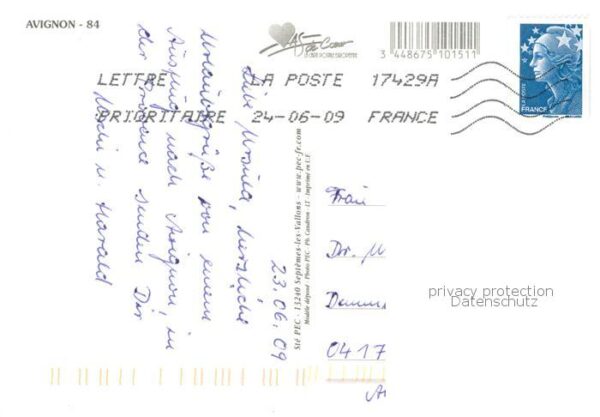 AVIGNON - 84
As de Cœur
LA CARTE POSTALE EUROPEENNE
3 448675 101511
LETTRE LA POSTE 17429A
PRIORITAIRE 24-06-09 FRANCE
FRANCE
23.06.09
Liebe Ursula, herzliche
Urlaubsgrüße von einem
Ausflug nach Avignon, in
der Provence senden Dir
u. Harald
Sté PEC - 13240 Septèmes-les-Vallons - www.pec-fr.com
Modèle déposé - Photo PEC - Ph. Caudron - LT - Imprimé en U.E
Frau
Dr. U
0417
privacy protection
Datenschutz